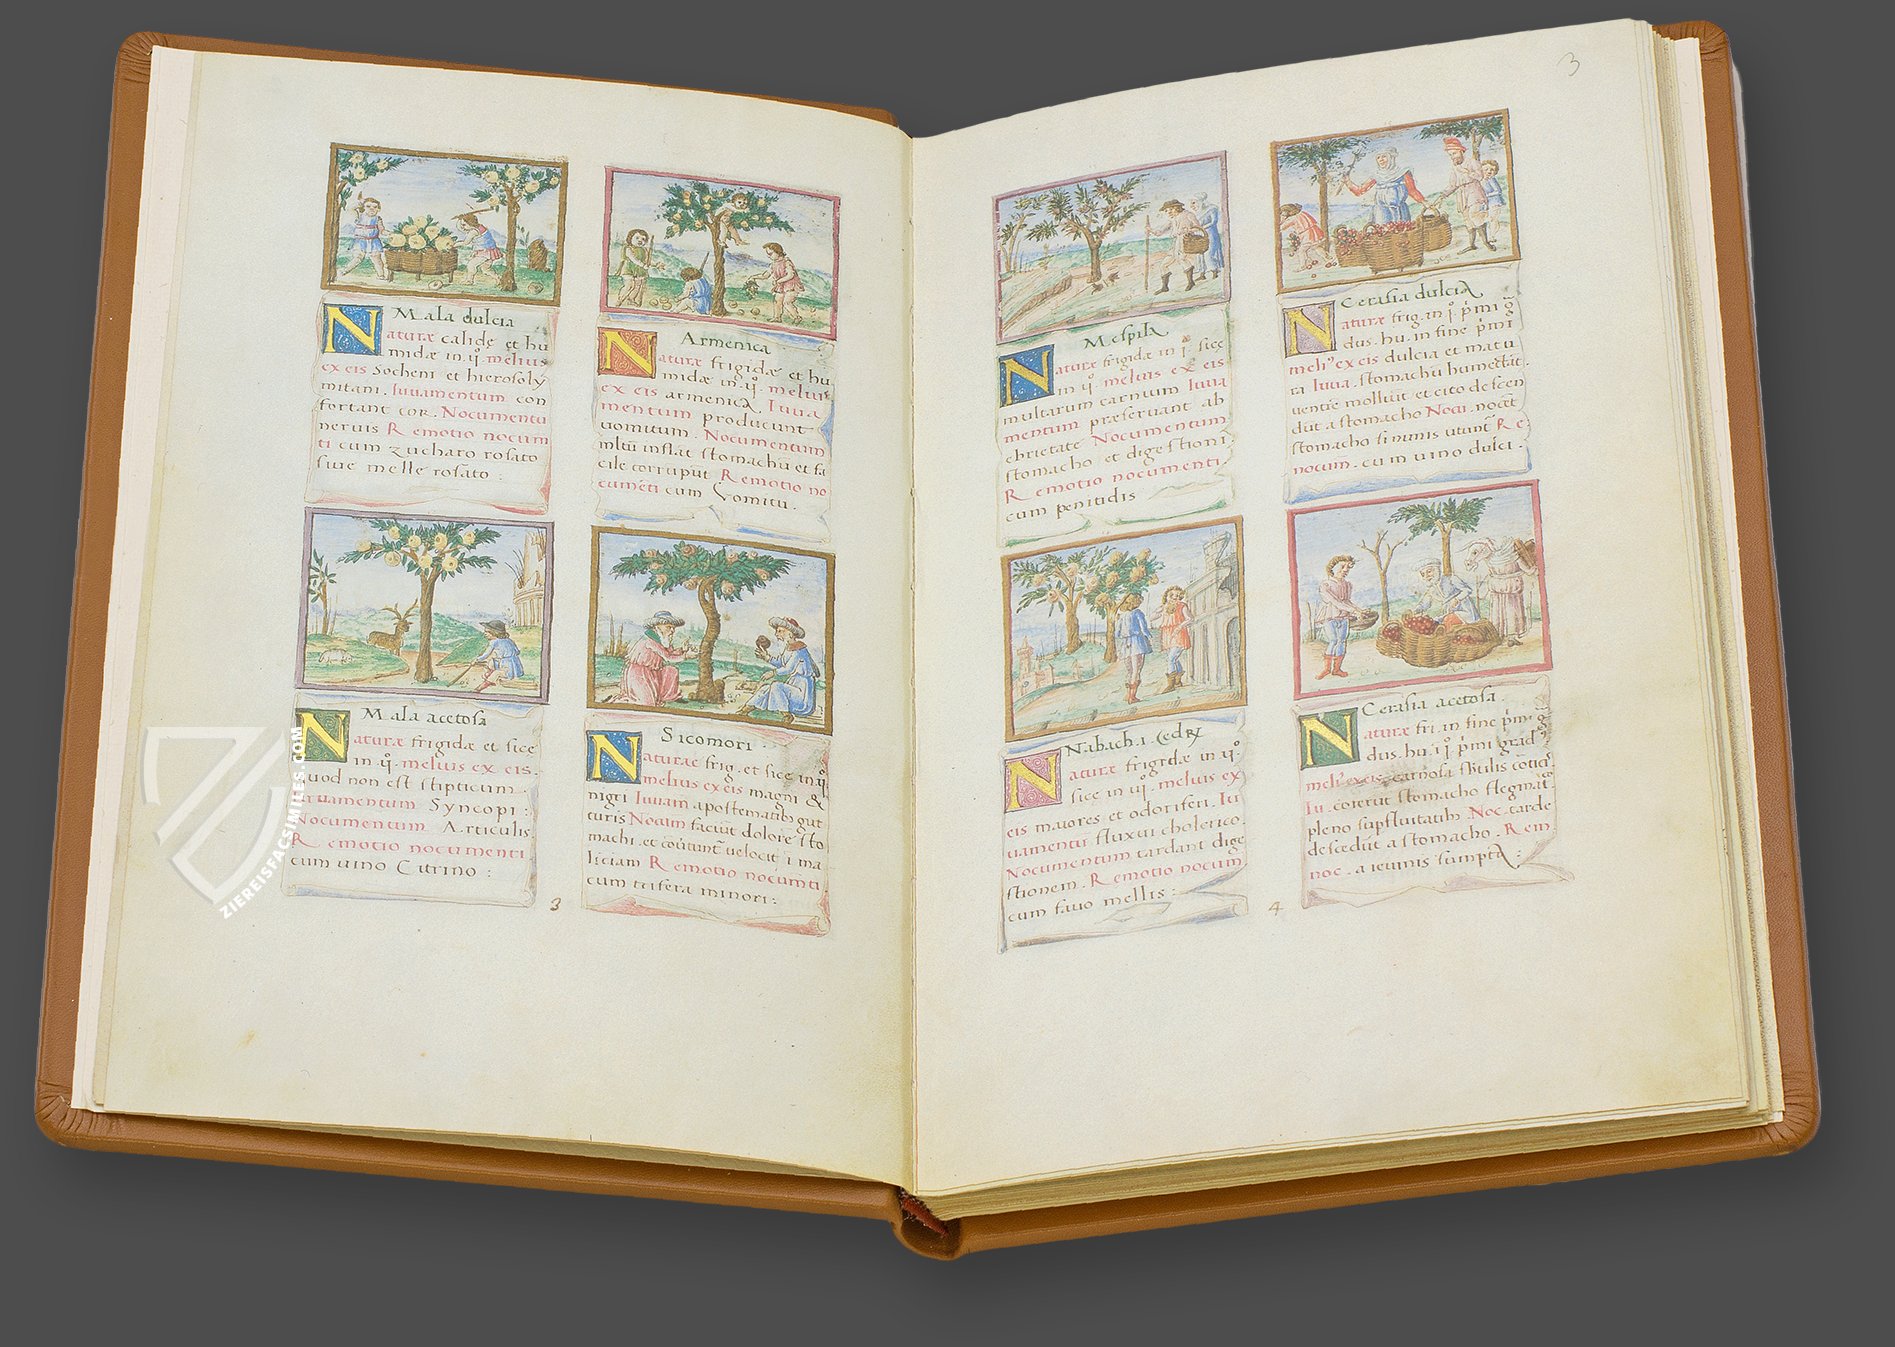 Mala dulcia
Naturæ calide et hu
midæ in.ij. melius
ex eis Socheni et hierosoly
mitani. Iuuamentum con
fortant cor. Nocumentu
neruis Remotio nocum
ti cum zucharo rosato
siue melle rosato.
Armenica
Naturæ frigidæ et hu
midæ in.ij. melius
ex eis armenica. Iuua
mentum producunt
uomitum. Nocumentum
inflat stomachu et fa
cile corruput Remotio no
cumeti cum Vomitu.
Mala acetosa
Naturæ frigidæ et sicce
in.ij. meluis ex eis.
quod non est stipticum.
Iuuamentum Syncopi:
Nocumentum Articulis.
Remotio nocumenti
cum uino Citrino:
Sicomori
Naturae frig. et sicc in.ij.
melius ex eis magni &
nigri Iuuam apostematib gut
turis Nocum faciut dolore sto
machi. et velocit i ma
liciam Remotio nocumti
cum trifera minori:
3
3
Mespila
Naturæ frigidæ in j. sicce
in ij. meluis ex eis
multarum carnium Iuua
mentum præseruant ab
ebrietate Nocumentum
stomacho et digestioni
Remotio nocumenti
cum penitidis
Cerasia dulcia
Naturæ frig. in j. pmi g
dus. hu. in fine pmi
meli ex eis dulcia et matu
ra Iuua. stomachu humectat.
uentre molliut et cito descen
dut a stomacho Nocu. nocet
stomacho si nimis utunt Re
nocum. cum uino dulci.
Nabach.i. Cedry
Naturæ frigidæ in ij.
sicce in ij. meluis ex
eis maiores et odoriferi. Iu
uamentu fluxui cholerico.
Nocumentum tardant dige
stionem. Remotio nocum
cum fauo mellis:
Cerasia acetosa.
Naturæ fri. in fine pmi g
dus. hu. i j. pmi grad
meli ex eis carnosa
Iu. stomacho flegmat.
pleno supfluitatib Noc. tarde
descedut a stomacho. Rem
noc. a ieiunis sumpta:
4
ZIEREISFACSIMILES.COM